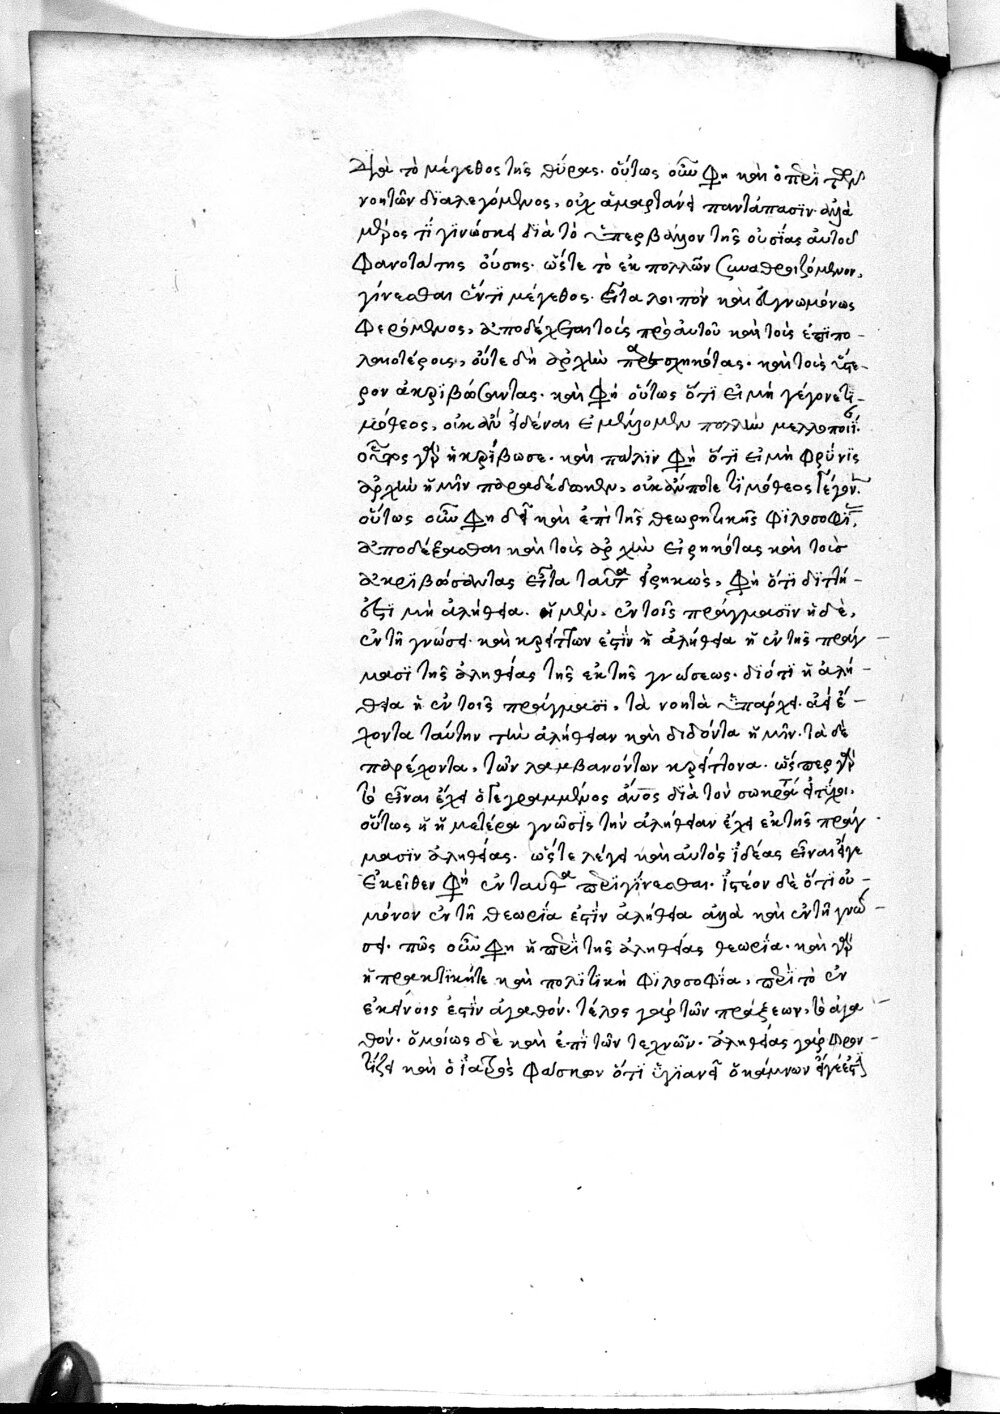 διὰ τὸ μέγεθος τῆς θύρας. οὕτως οὖν φη καὶ ὁ περὶ τῶν
νοητῶν διαλεγόμενος, οὐχ ἁμαρτάνει παντάπασιν ἀλλὰ
μέρος τι γινώσκει διὰ τὸ ὑπερβάλλον τῆς οὐσίας αὐτοῦ
φανοτάτης οὔσης. ὥστε τὸ ἐκ πολλῶν συναθροιζόμενον,
γίνεσθαι ἔν τι μέγεθος. εἶτα λοιπὸν καὶ εὐγνωμόνως
φερόμενος, ἀποδέχεται τοὺς πρὸ αὐτοῦ καὶ τοὺς ἐπιπο-
λαιοτέροις, οὔτε δὴ ἀρχὴν παρεσχηκότας. καὶ τοὺς ὕστε-
ρον ἀκριβώσαντας. καὶ φη οὕτως ὅτι εἰ μὴ γέγονε τι-
μόθεος, οὐκ ἂν εἰδέναι ἐμέλλομεν πολλὴν μελοποιΐ.
οὗτος γὰρ ἠκρίβωσε. καὶ πάλιν φη ὅτι εἰ μὴ φρύνις
ἀρχὴν ἡμῖν παραδέδωκεν, οὐκ ἄν ποτε τιμόθεος γέγον.
οὕτως οὖν φη δεῖ καὶ ἐπὶ τῆς θεωρητικῆς φιλοσοφί,
ἀποδέξασθαι καὶ τοὺς ἀρχὴν εἰρηκότας καὶ τοὺς
ἀκριβώσαντας εἶτα ταῦτα εἰρηκὼς, φη ὅτι διττή
ἐστι μὴ ἀλήθεια. ἡ μὲν, ἐν τοῖς πράγμασιν ἡ δὲ,
ἐν τῇ γνώσει. καὶ κρείττων ἐστὶν ἡ ἀλήθεια ἡ ἐν τοῖς πράγ-
μασι τῆς ἀληθείας τῆς ἐκ τῆς γνώσεως. διότι ἡ ἀλή-
θεια ἡ ἐν τοῖς πράγμασι, τὰ νοητὰ ὑπάρχει. ἀεὶ ἔ-
χοντα ταύτην τὴν ἀλήθειαν καὶ διδόντα ἡμῖν. τὰ δὲ
παρέχοντα, τῶν λαμβανόντων κρείττονα. ὥσπερ γὰρ
τὸ εἶναι ἔχει ὁ γεγραμμένος ἄνος διὰ τὸν σωκράτη
οὕτως ἡ ἡμετέρα γνῶσις τὴν ἀλήθειαν ἔχει ἐκ τῆς πράγ-
μασιν ἀληθείας. ὥστε λέγει καὶ αὐτὸς ἰδέας εἶναι εἴγε
ἐκεῖθεν φη ἐνταῦθα περιγίνεσθαι. ἰστέον δὲ ὅτι οὐ-
μόνον ἐν τῇ θεωρία ἐστὶν ἀλήθεια ἀλλὰ καὶ ἐν τῇ γνώ-
σει. πῶς οὖν φη ἡ περὶ τῆς ἀληθείας θεωρία. καὶ γὰρ
ἡ πρακτικήτε καὶ πολιτικὴ φιλοσοφία, περὶ τὸ ἐν
ἐκείνοις ἐστὶν ἀγαθόν. τέλος γὰρ τῶν πράξεων, τὸ ἀγα
θόν. ὁμοίως δὲ καὶ ἐπὶ τῶν τεχνῶν. ἀληθείας γὰρ φρον-
τίζει καὶ ὁ ἰατρὸς φάσκων ὅτι ὑγιανεῖ ὁ κάμνων εἴγε ἐστὶ